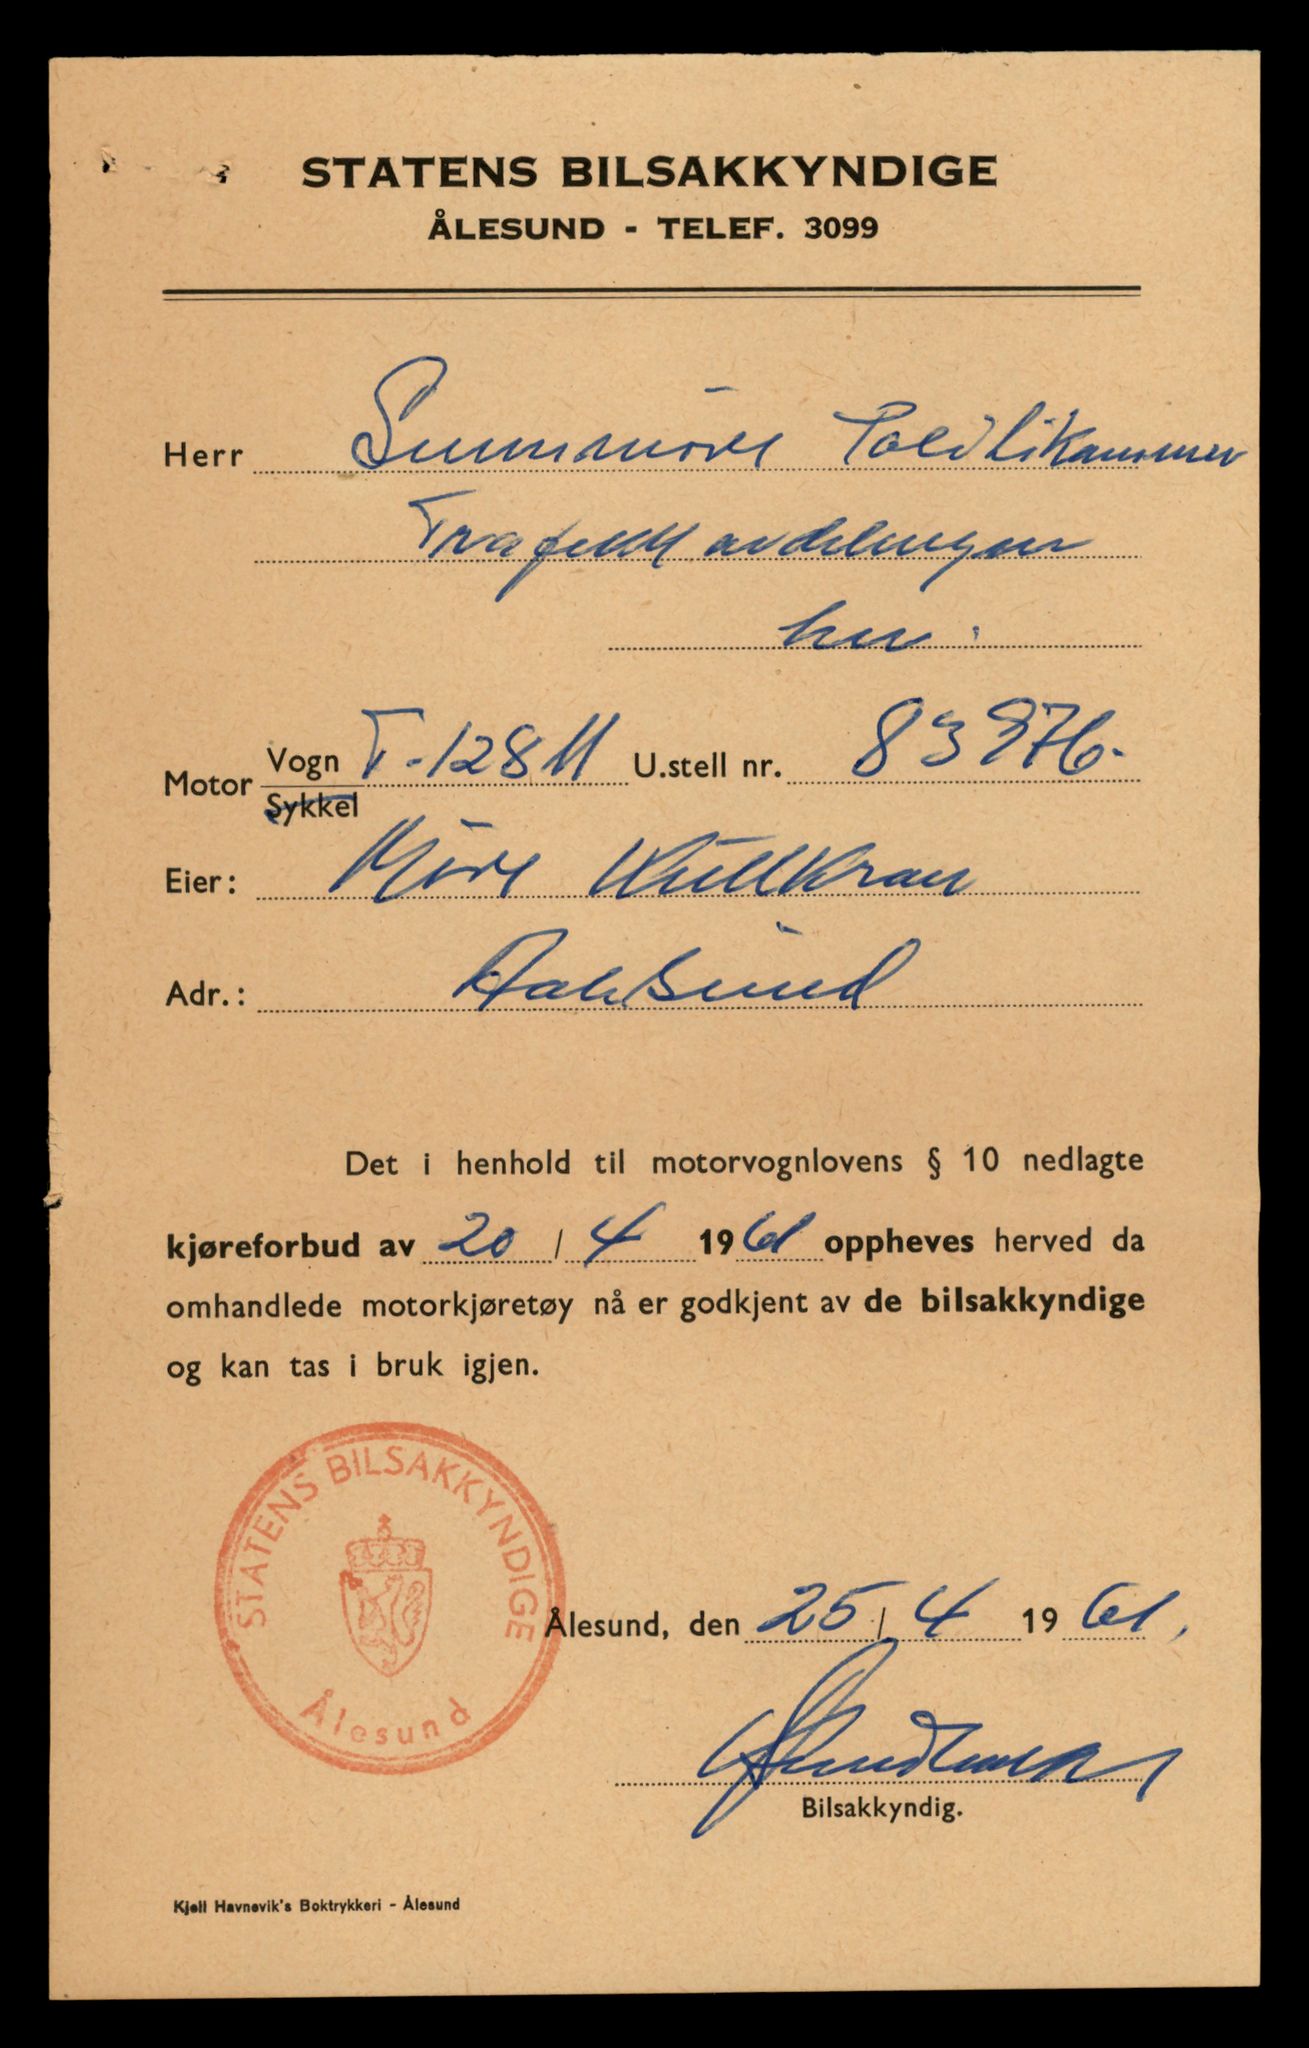 STATENS BILSAKKYNDIGE
ÅLESUND - TELEF. 3099
Herr Sunnmöre Politikammer
Trafikkavdelingen
her.
Motor Vogn T-12811 U.stell nr. 83976.
Sykkel
Eier: Möre Kullkran
Adr.: Aalesund
Det i henhold til motorvognlovens § 10 nedlagte
kjøreforbud av 20 / 4 1961 oppheves herved da
omhandlede motorkjøretøy nå er godkjent av de bilsakkyndige
og kan tas i bruk igjen.
STATENS BILSAKKYNDIGE
Ålesund
Ålesund, den 25 / 4 1961.
Bilsakkyndig.
Kjell Havnevik's Boktrykkeri - Ålesund